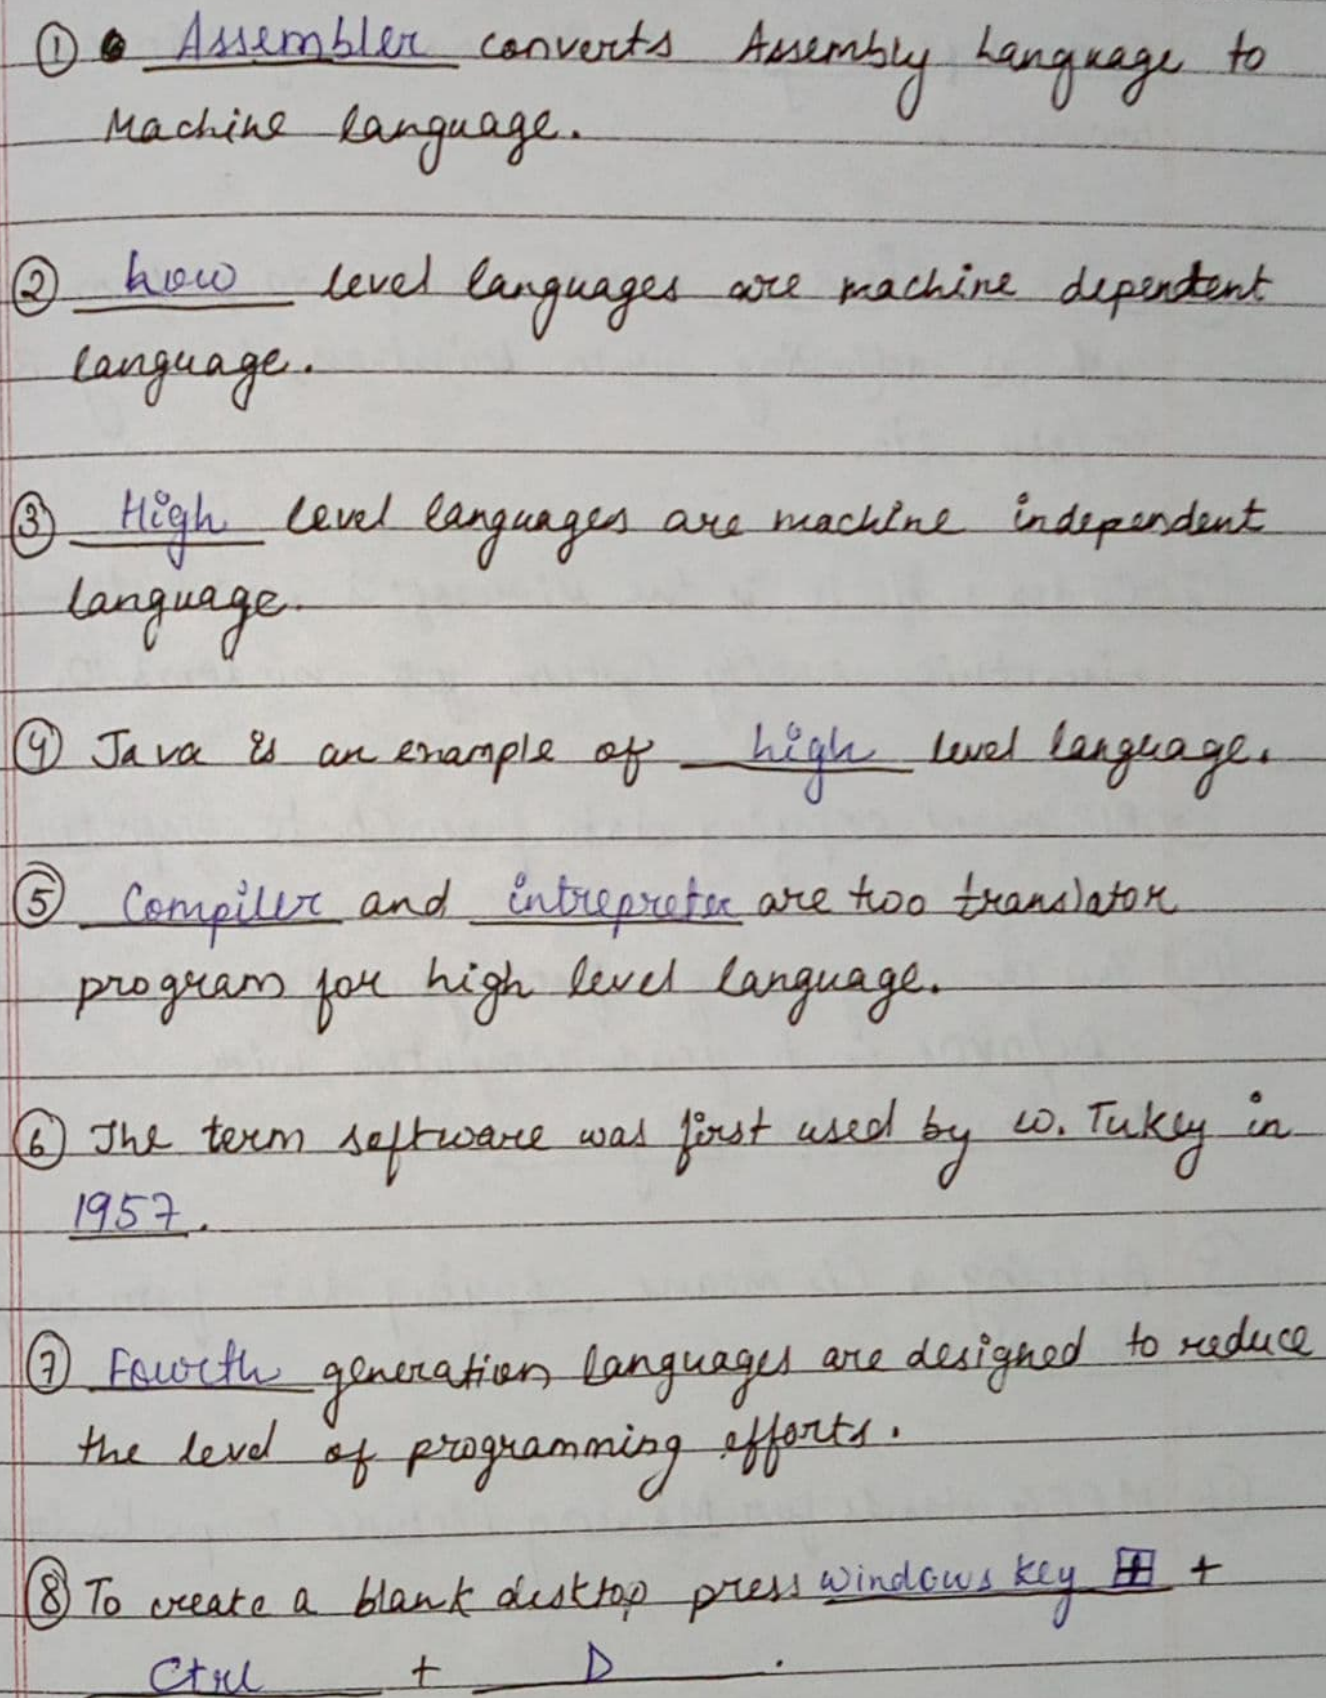 ① Assembler converts Assembly Language to
Machine language.
② Low level languages are machine dependent
language.
③ High level languages are machine independent
language.
④ Java is an example of high level language.
⑤ Compiler and intrepreter are two translator
program for high level language.
⑥ The term software was first used by W. Tukey in
1957.
⑦ Fourth generation languages are designed to reduce
the level of programming efforts.
⑧ To create a blank desktop press windows key ⊞ +
Ctrl + D.